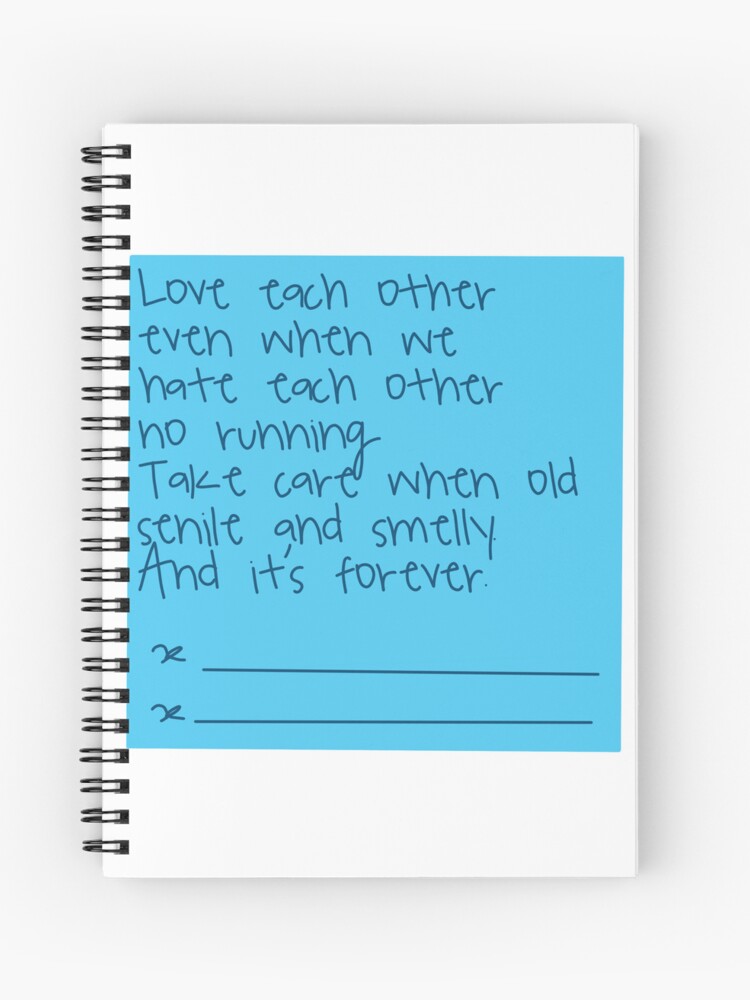 Love each other
even when we
hate each other
no running
Take care when old
senile and smelly.
And it's forever.
x
x